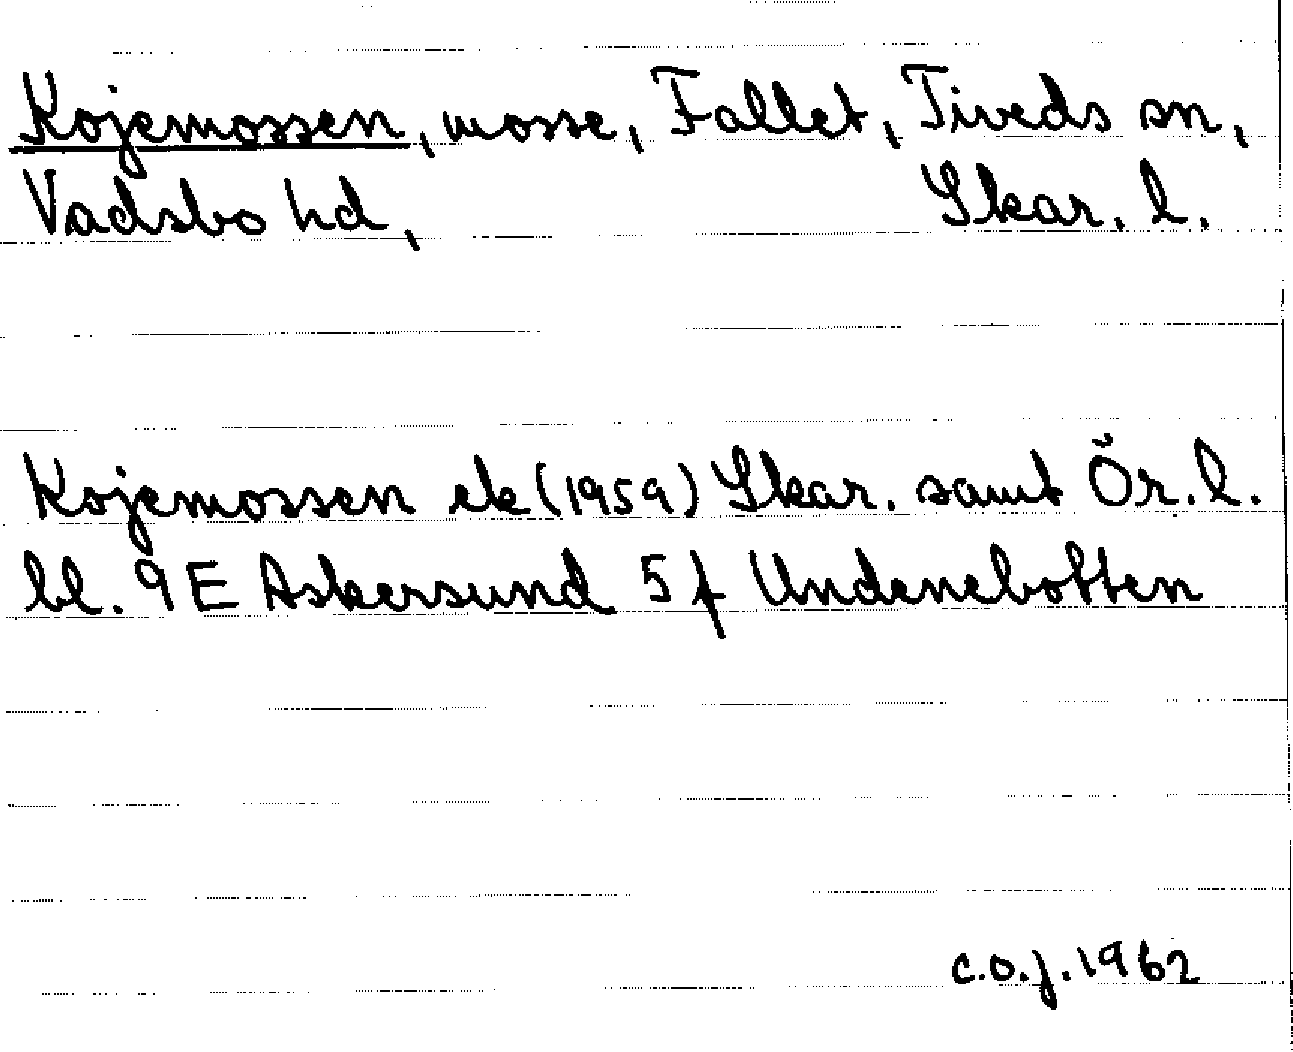 Kojemossen, mosse, Fallet, Tiveds sn,
Vadsbo hd, Skar. l.
Kojemossen ek (1959) Skar. samt Ör. l.
bl. 9E Askersund 5 f Undenebotten
C.O.J. 1962